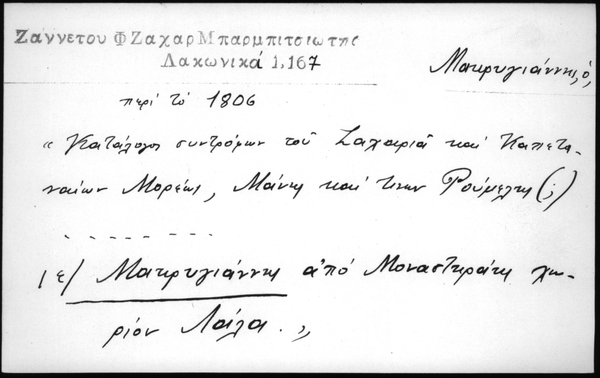 Ζαννετου Φ Ζαχαρ Μπαρμπιτσιωτης
Λακωνικά 1,167
Μακρυγιάννης, ὁ,
περί τό 1806
« Κατάλογος συντρόμων τοῦ Ζαχαριᾶ καί Καπετα-
ναίων Μορέως, Μάνης καί τινων Ρούμελης (;)
- - - - - - - -
ιε/ Μακρυγιάννης ἀπό Μοναστηράκι χω-
ρίον Λάλα. »